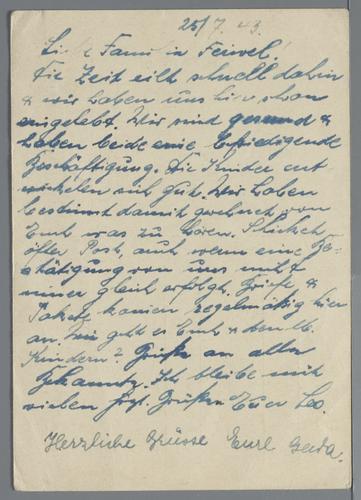 25/7.43.
Liebe Familie Feiwel!
Die Zeit eilt schnell dahin
& wir haben uns hier schon
eingelebt. Wir sind gesund &
haben beide eine befriedigende
Beschäftigung. Die Kinder ent
wickeln sich gut. Wir haben
bestimmt damit gerechnet von
Euch was zu hören. Schicket
öfter Post, auch wenn eine Be-
stätigung von uns nicht
immer gleich erfolgt. Briefe &
Pakete kommen regelmäßig hier
an. Wie geht es Euch & den lb.
Kindern? Grüße an alle
Bekannte. Ich bleibe mit
vielen herzl. Grüßen Euer Leo.
Herzliche Grüsse Eure Gerda.